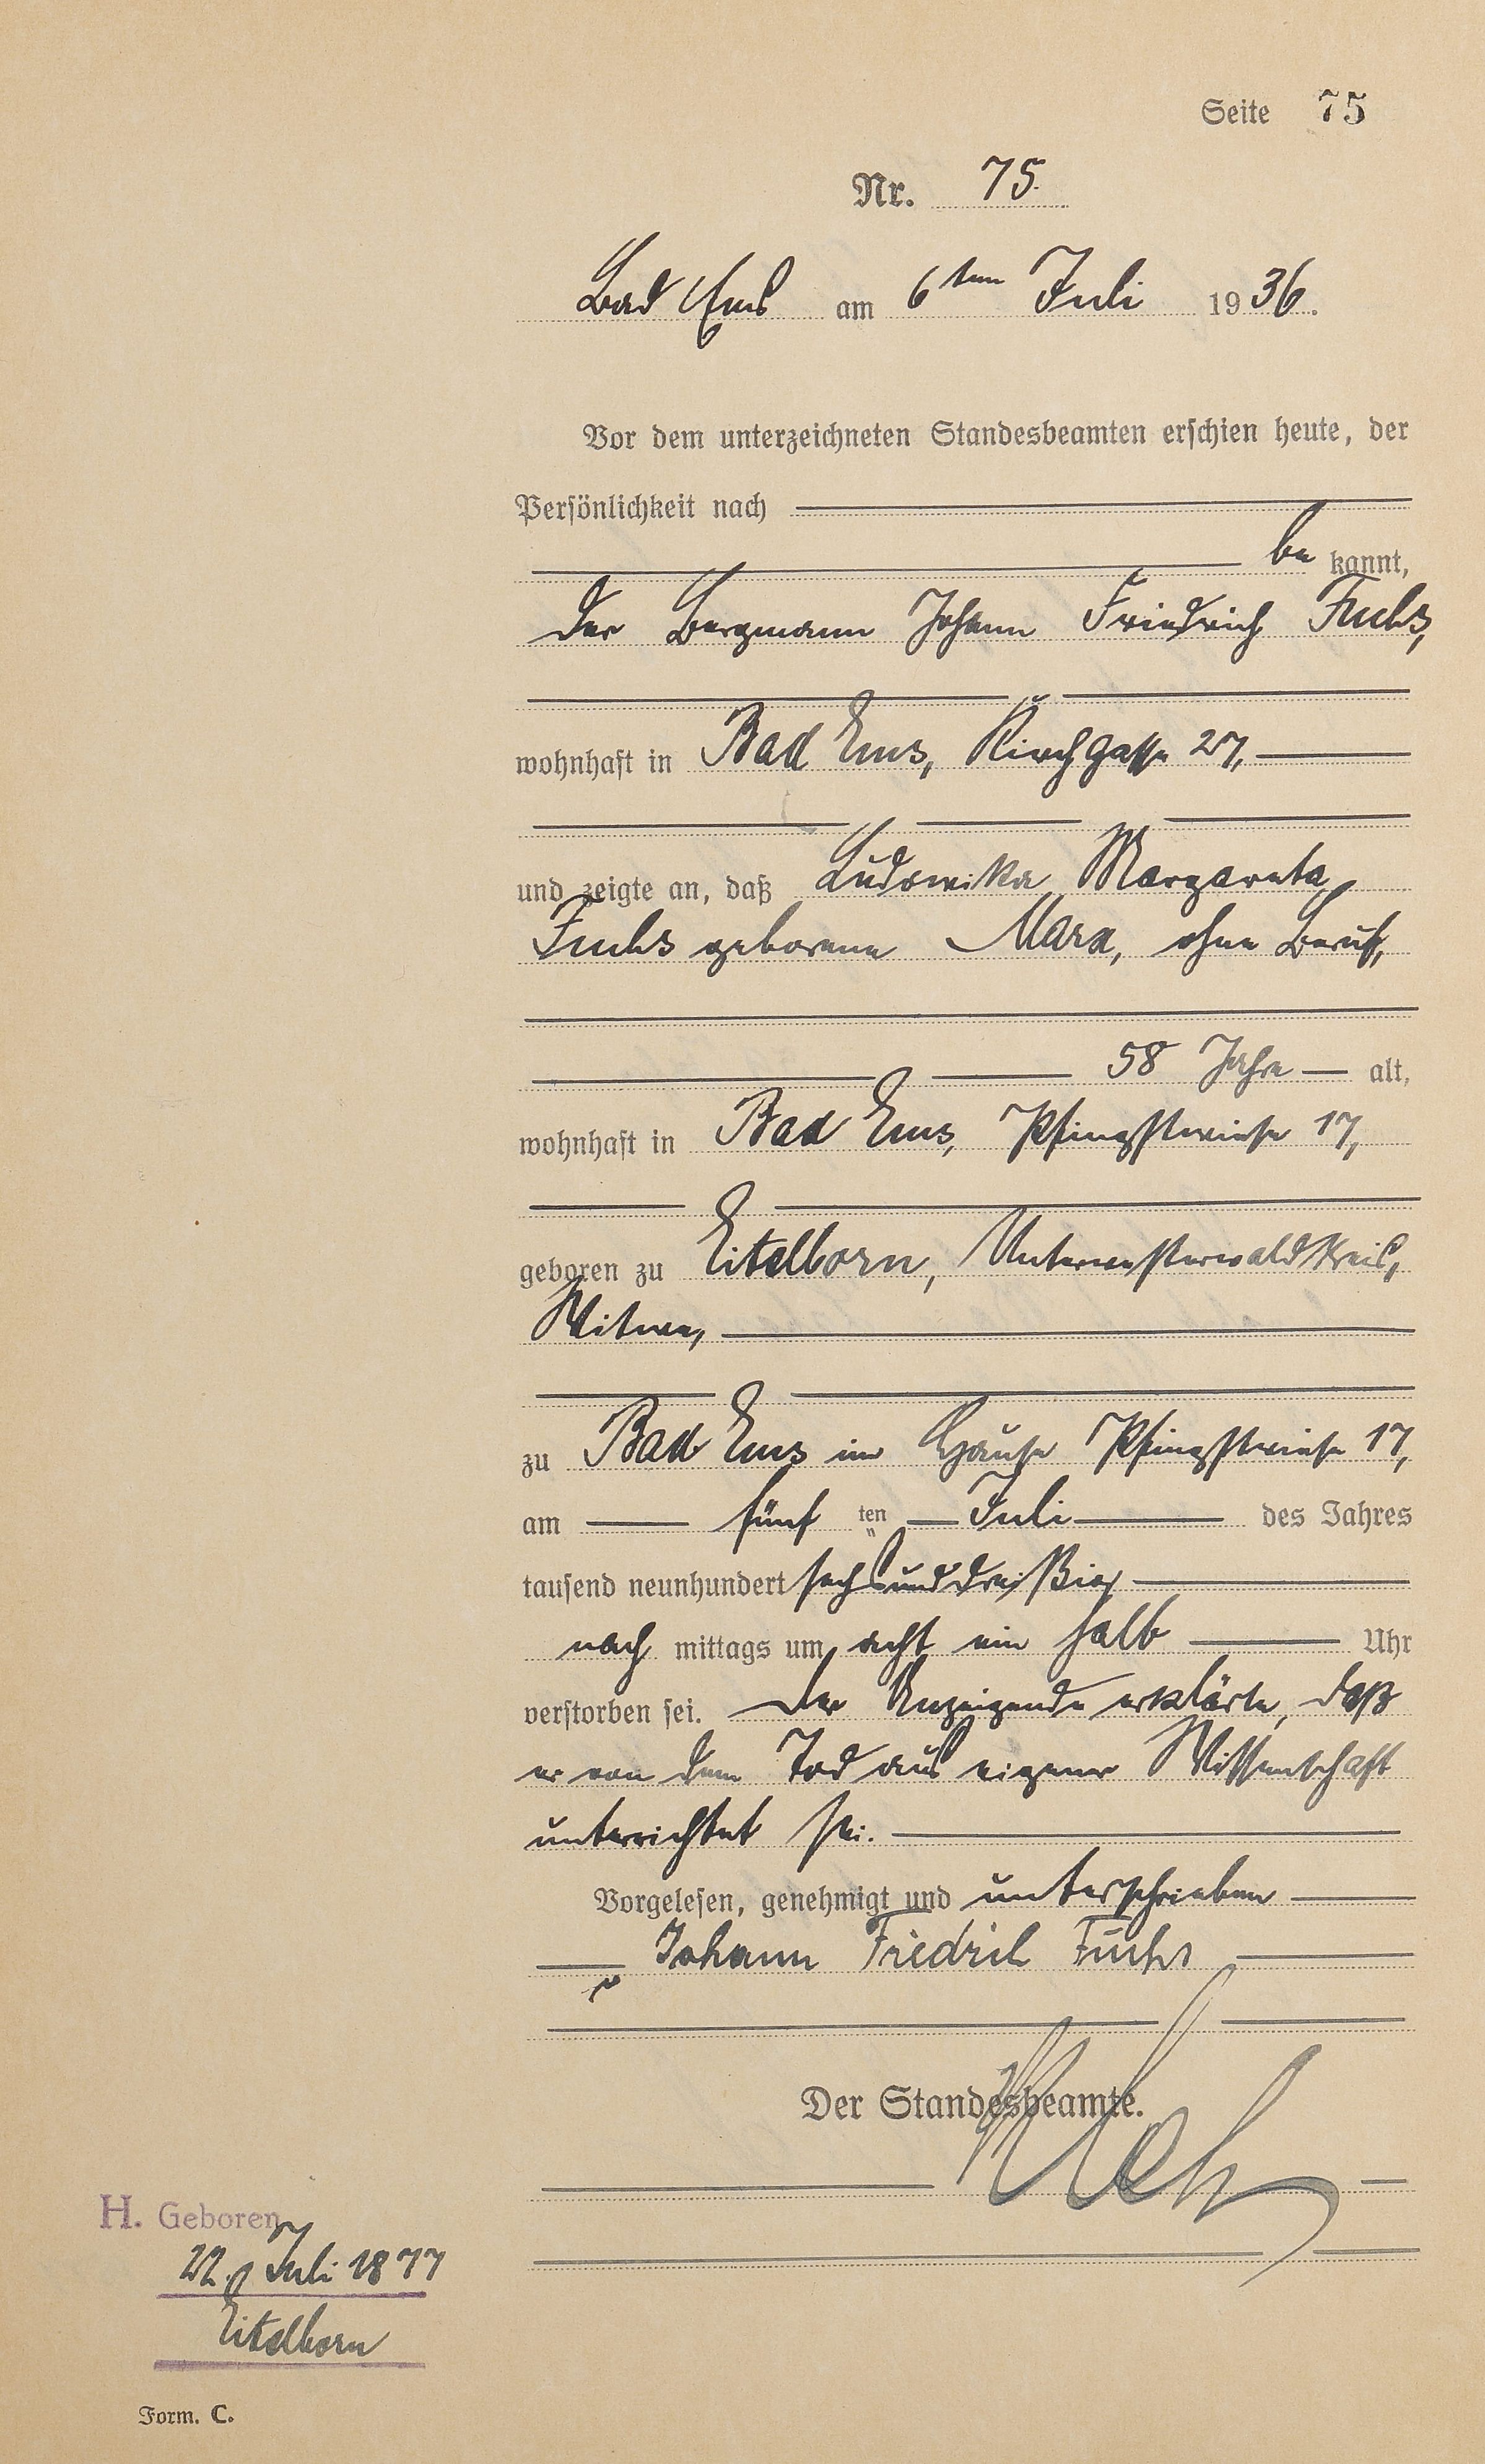 Seite 75
Nr. 75.
Bad Ems am 6ten Juli 1936.
Vor dem unterzeichneten Standesbeamten erschien heute, der
Persönlichkeit nach
be kannt,
der Bergmann Johann Friedrich Fuchs,
wohnhaft in Bad Ems, Kirchgasse 27,
und zeigte an, daß Ludowika Margareta
Fuchs geborene Marx, ohne Beruf,
58 Jahre alt,
wohnhaft in Bad Ems, Pfingstwiese 17,
geboren zu Eitelborn, Unterwesterwaldkreis,
Witwe,
zu Bad Ems im Hause Pfingstwiese 17,
am fünf ten Juli des Jahres
tausend neunhundert sechsunddreißig
nach mittags um acht ein halb Uhr
verstorben sei. Der Anzeigende erklärte, daß
er von dem Tod aus eigener Wissenschaft
unterrichtet sei.
Vorgelesen, genehmigt und unterschrieben
Johann Friedrich Fuchs
Der Standesbeamte.
H. Geboren
22. Juli 1877
Eitelborn
Form. C.